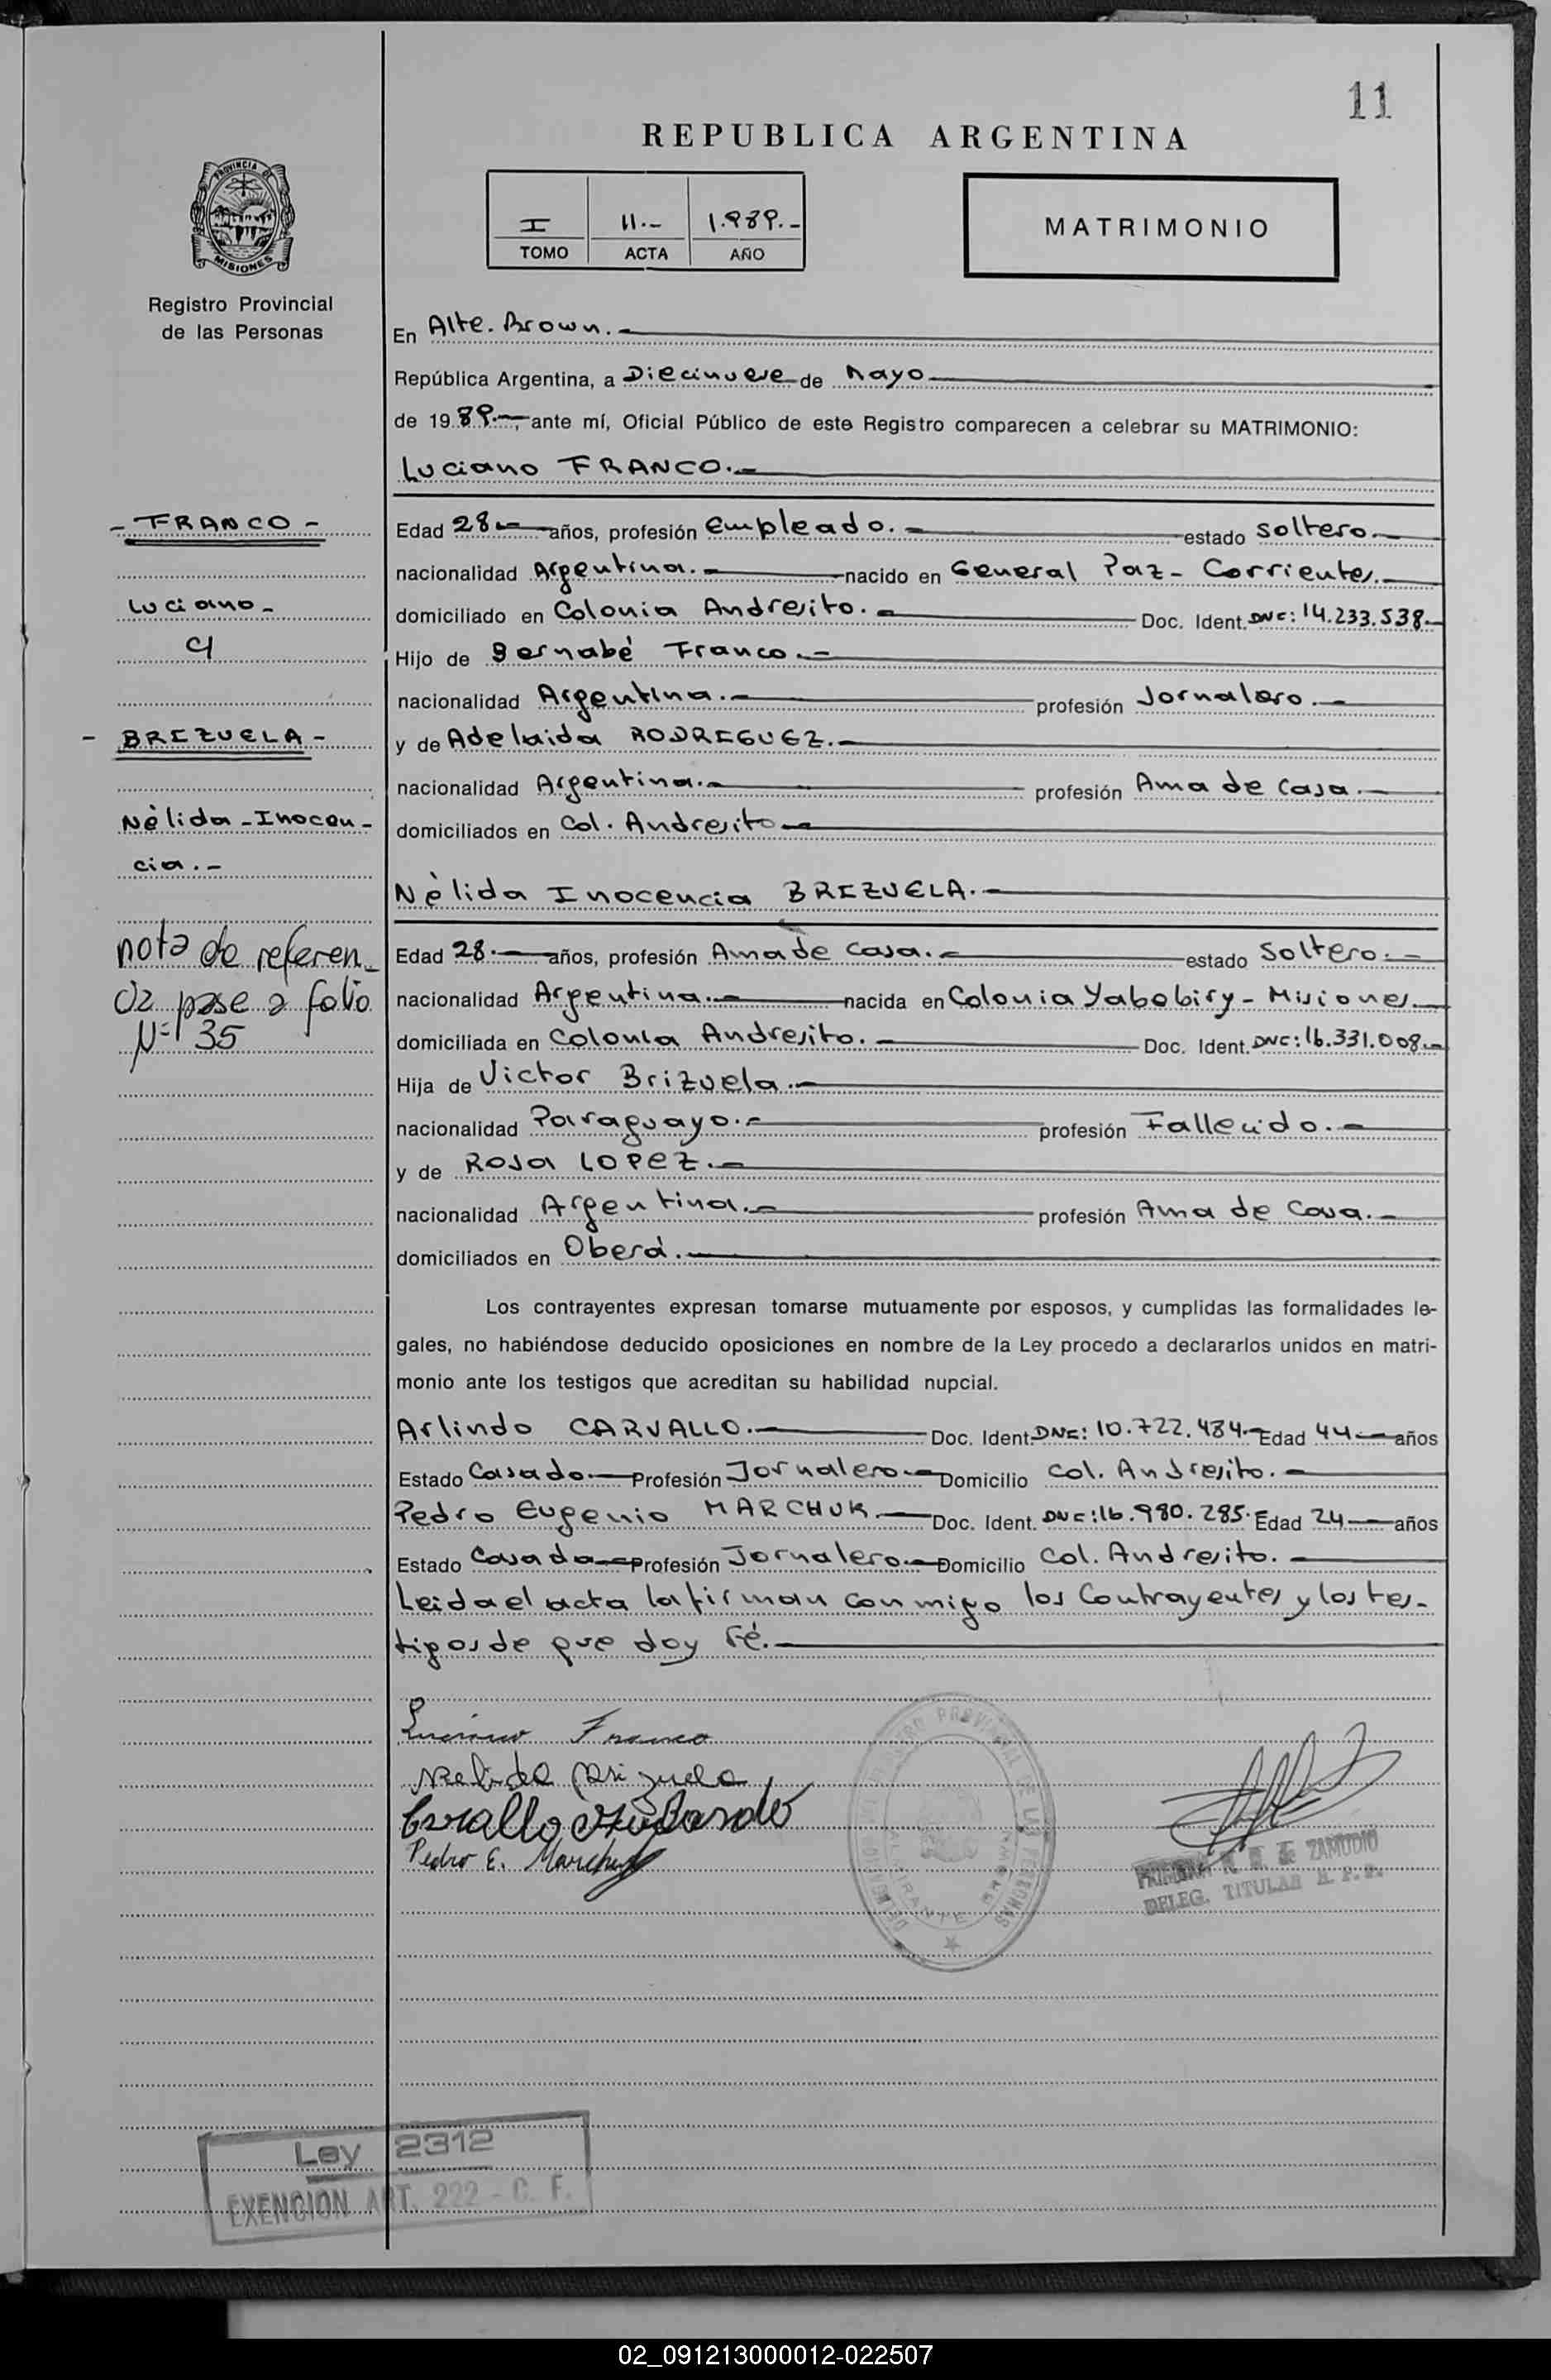 11
REPUBLICA ARGENTINA
I 11.- 1.989.-
TOMO ACTA AÑO
MATRIMONIO
PROVINCIA DE
MISIONES
Registro Provincial
de las Personas
En Alte. Brown.-
República Argentina, a Diecinueve de Mayo
de 19 89.-, ante mí, Oficial Público de este Registro comparecen a celebrar su MATRIMONIO:
Luciano FRANCO.-
- FRANCO -
Luciano -
C/
- BREZUELA -
Nélida - Inocen-
cia.-
nota de referen-
cia pase a folio
Nº 35
Edad 28 años, profesión Empleado.- estado Soltero.-
nacionalidad Argentina.- nacido en General Paz - Corrientes.-
domiciliado en Colonia Andresito.- Doc. Ident. DNI: 14.233.538.-
Hijo de Bernabé Franco.-
nacionalidad Argentina.- profesión Jornalero.-
y de Adelaida RODRIGUEZ.-
nacionalidad Argentina.- profesión Ama de Casa.-
domiciliados en Col. Andresito.-
Nélida Inocencia BREZUELA.-
Edad 28.- años, profesión Ama de Casa.- estado Soltero.-
nacionalidad Argentina.- nacida en Colonia Yabebiry - Misiones.-
domiciliada en Colonia Andresito.- Doc. Ident. DNI: 16.331.008.-
Hija de Victor Brizuela.-
nacionalidad Paraguayo.- profesión Fallecido.-
y de Rosa LOPEZ.-
nacionalidad Argentina.- profesión Ama de Casa.-
domiciliados en Oberá.-
Los contrayentes expresan tomarse mutuamente por esposos, y cumplidas las formalidades le-
gales, no habiéndose deducido oposiciones en nombre de la Ley procedo a declararlos unidos en matri-
monio ante los testigos que acreditan su habilidad nupcial.
Arlindo CARVALLO.- Doc. Ident. DNI: 10.722.484.- Edad 44 años
Estado Casado.- Profesión Jornalero.- Domicilio Col. Andresito.-
Pedro Eugenio MARCHUK.- Doc. Ident. DNI: 16.980.285. Edad 24 años
Estado Casado Profesión Jornalero.- Domicilio Col. Andresito.-
Leida el acta la firman conmigo los Contrayentes y los tes-
tigos de que doy fé.-
Luciano Franco
Nelida Brizuela
Pedro E. Marchuk
REGISTRO PROVINCIAL DE LAS PERSONAS
ALMIRANTE BROWN
ZAMUDIO
DELEG. TITULAR R. P. P.
Ley 2312
EXENCION ART. 222 - C. F.
02_091213000012-022507